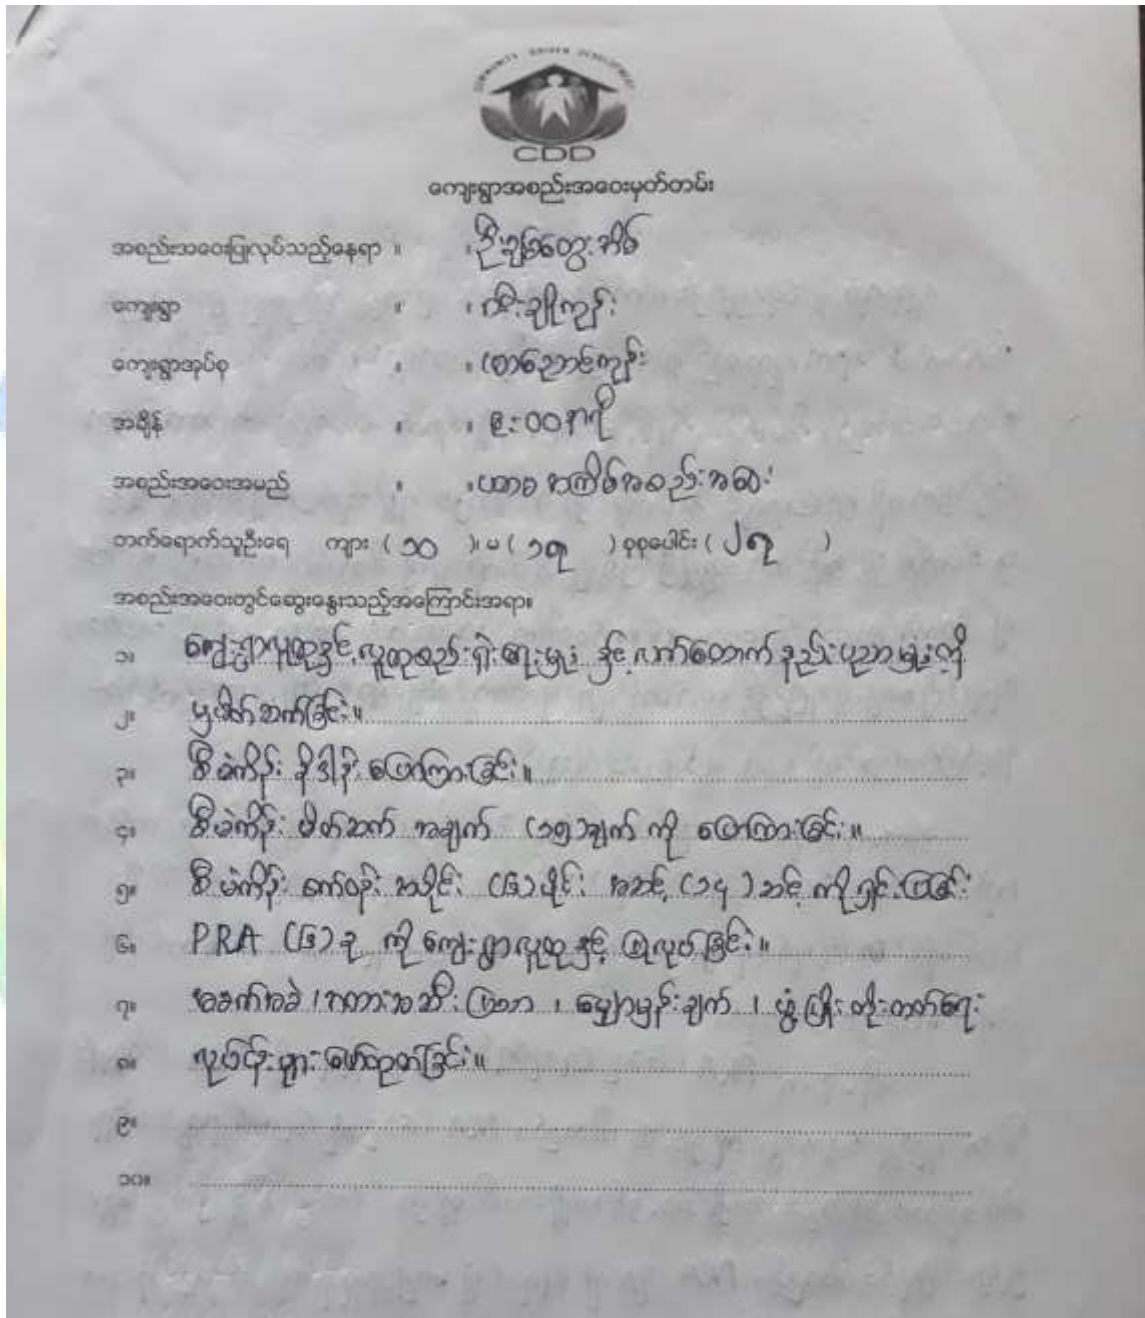 COMMUNITY DRIVEN DEVELOPMENT
CDD
ကျေးရွာအစည်းအဝေးမှတ်တမ်း
အစည်းအဝေးပြုလုပ်သည့်နေရာ ။ ။ ဦးချစ်တွေးအိမ်
ကျေးရွာ ။ ။ ကင်းချိုကျွန်း
ကျေးရွာအုပ်စု ။ ။ ညောင်ကျွန်း
အချိန် ။ ။ ၉:၀၀ နာရီ
အစည်းအဝေးအမည် ။ ။ ပထမအကြိမ်အစည်းအဝေး
တက်ရောက်သူဦးရေ ကျား ( ၁၀ )၊ မ ( ၁၇ ) စုစုပေါင်း ( ၂၇ )
အစည်းအဝေးတွင်ဆွေးနွေးသည့်အကြောင်းအရာ။
၁။ ကျေးရွာလူထုနှင့် လူထုစည်းရုံးရေးမှူး နှင့် လက်ထောက်နည်းပညာမှူးတို့
၂။ မိတ်ဆက်ခြင်း။
၃။ စီမံကိန်း နိဒါန်း ပြောကြားခြင်း။
၄။ စီမံကိန်း မိတ်ဆက် အချက် (၁၅)ချက် ကို ပြောကြားခြင်း။
၅။ စီမံကိန်း စက်ဝန်း အပိုင်း (၆)ပိုင်း အဆင့် (၁၄)ဆင့် ကိုရှင်းပြခြင်း
၆။ PRA (၆)ခု ကို ကျေးရွာလူထုနှင့် ပြုလုပ်ခြင်း။
၇။ အခက်အခဲ ၊ အတားအဆီး ပြဿနာ ၊ မျှော်မှန်းချက် ၊ ဖွံ့ဖြိုးတိုးတက်ရေး
၈။ လုပ်ငန်းများ ဖော်ထုတ်ခြင်း။
၉။
၁၀။